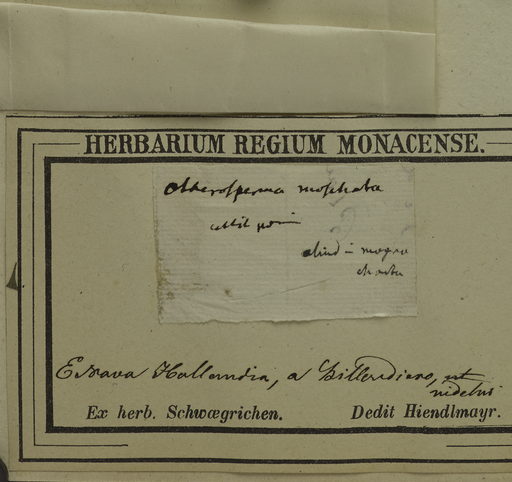 HERBARIUM REGIUM MONACENSE.
Atherosperma moschata
aliud in
E Nova Hollandia, a Billardiero, ut
videtur
Ex herb. Schwægrichen. Dedit Hiendlmayr.